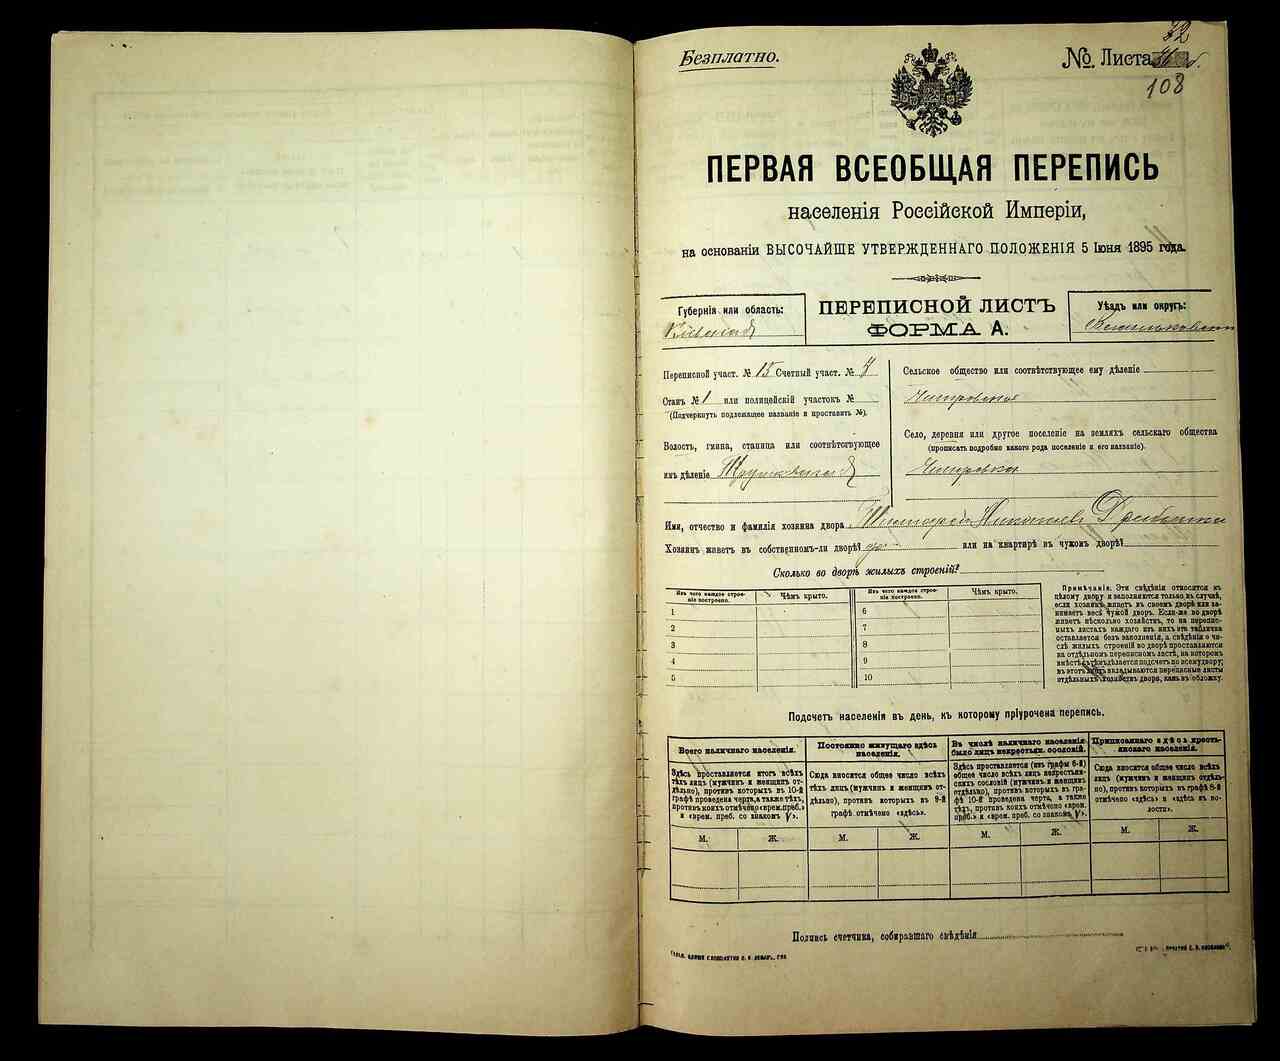 Безплатно.
№ Листа
32
108
ПЕРВАЯ ВСЕОБЩАЯ ПЕРЕПИСЬ
населенія Россійской Имперіи,
на основаніи ВЫСОЧАЙШЕ УТВЕРЖДЕННАГО ПОЛОЖЕНІЯ 5 Іюня 1895 года.
Губернія или область:
Кіевская
ПЕРЕПИСНОЙ ЛИСТЪ
ФОРМА А.
Уѣздъ или округъ:
Переписной участ. № 15 Счетный участ. №
Станъ № 1 или полицейскій участокъ №
(Подчеркнуть подлежащее названіе и проставить №).
Волость, гмина, станица или соотвѣтствующее
имъ дѣленіе Трушковская
Сельское общество или соотвѣтствующее ему дѣленіе
Село, деревня или другое поселеніе на земляхъ сельскаго общества
(прописать подробно какого рода поселеніе и его названіе).
Имя, отчество и фамилія хозяина двора
Хозяинъ живетъ въ собственномъ-ли дворѣ? или на квартирѣ въ чужомъ дворѣ?
Сколько во дворѣ жилыхъ строеній?
Изъ чего каждое строеніе построено. Чѣмъ крыто. Изъ чего каждое строеніе построено. Чѣмъ крыто.
1 6
2 7
3 8
4 9
5 10
Примѣчаніе. Эти свѣдѣнія относятся къ
цѣлому двору и заполняются только въ случаѣ,
если хозяинъ живетъ въ своемъ дворѣ или занимаетъ
весь чужой дворъ. Если-же во дворѣ
живетъ нѣсколько хозяйствъ, то на переписныхъ
листахъ каждаго изъ нихъ эта табличка
оставляется безъ заполненія, а свѣдѣнія о числѣ
жилыхъ строеній во дворѣ проставляются
на отдѣльномъ переписномъ листѣ, на которомъ
вмѣстѣ съ тѣмъ дѣлается подсчетъ по всему двору;
въ этотъ листъ вкладываются переписные листы
отдѣльныхъ хозяйствъ двора, какъ въ обложку.
Подсчетъ населенія въ день, къ которому пріурочена перепись.
Всего наличнаго населенія.
Здѣсь проставляется итогъ всѣхъ
тѣхъ лицъ (мужчинъ и женщинъ отдѣльно),
противъ которыхъ въ 10-й
графѣ проведена черта, а также тѣхъ,
противъ коихъ отмѣчено «врем. преб.»
и «врем. преб. со знакомъ V».
Постоянно живущаго здѣсь
населенія.
Сюда вносится общее число всѣхъ
тѣхъ лицъ (мужчинъ и женщинъ отдѣльно),
противъ которыхъ въ 9-й
графѣ отмѣчено «здѣсь».
Въ числѣ наличнаго населенія
было лицъ некрестьян. сословій.
Здѣсь проставляется (изъ графы 6-й)
общее число всѣхъ лицъ некрестьянскихъ
сословій (мужчинъ и женщинъ
отдѣльно), противъ которыхъ въ графѣ
10-й проведена черта, а также
тѣхъ, противъ коихъ отмѣчено «врем.
преб.» и «врем. преб. со знакомъ V».
Приписаннаго здѣсь крестьянскаго
населенія.
Сюда вносится общее число всѣхъ
лицъ (мужчинъ и женщинъ отдѣльно),
противъ которыхъ въ графѣ 8-й
отмѣчено «здѣсь» и «здѣсь въ волости».
М. Ж. М. Ж. М. Ж. М. Ж.
Подпись счетчика, собиравшаго свѣдѣнія